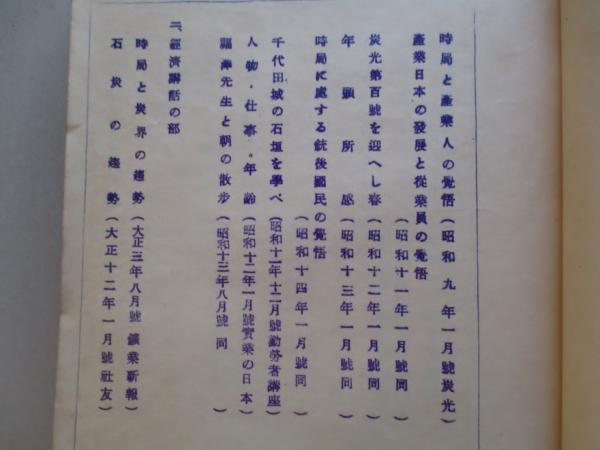 時局と產業人の覺悟(昭和九年一月號炭光)
產業日本の發展と從業員の覺悟
(昭和十一年一月號同)
炭光第百號を迎へし春(昭和十二年一月號同)
年頭所感(昭和十三年一月號同)
時局に處する銃後國民の覺悟
(昭和十四年一月號同)
千代田城の石垣を學べ(昭和十一年十二月號勤勞者講座)
人物・仕事・年齡(昭和十二年一月號實業の日本)
福澤先生と朝の散步(昭和十三年八月號同)
二、經濟講話の部
時局と炭界の趨勢(大正三年八月號鑛業新報)
石炭の趨勢(大正十二年一月號社友)